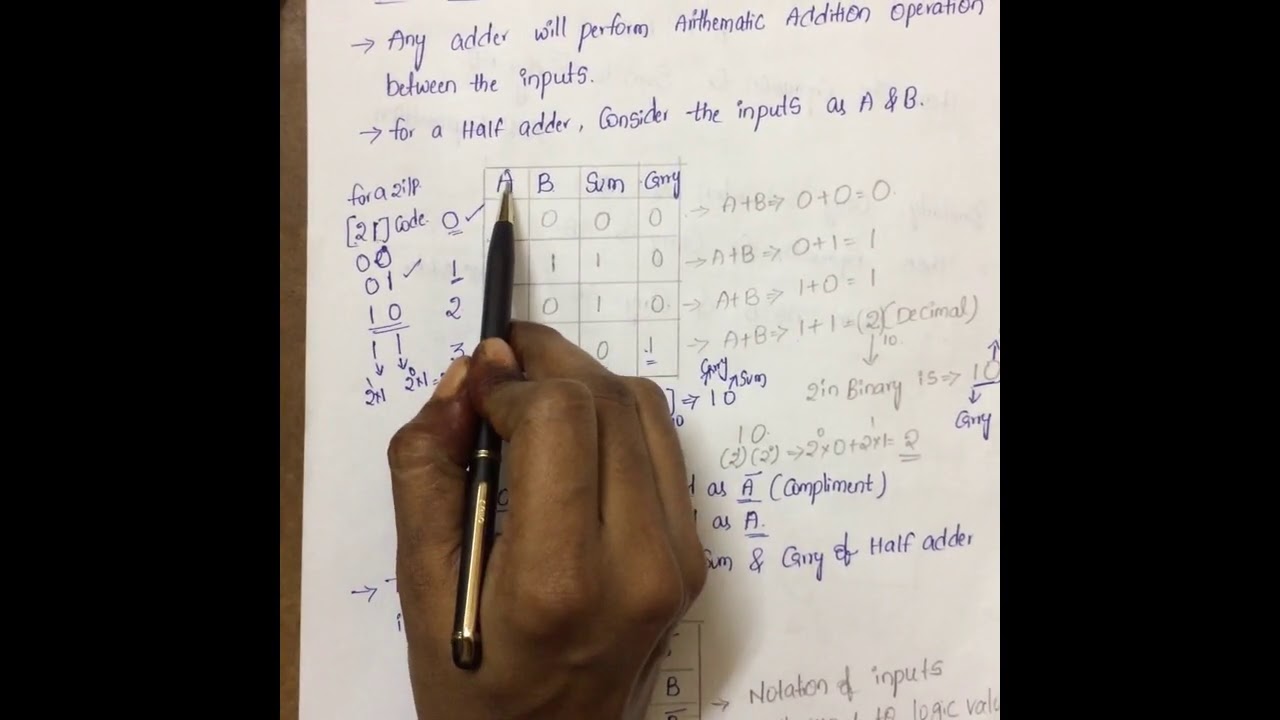 → Any adder will perform Arithematic Addition operation
between the inputs.
→ for a Half adder, Consider the inputs as A & B.
for a 2i/p.
[21] Code.
00
01 ✓
10
11
2¹×1 2⁰×1=
0 ✓
1
2
3
A B Sum Carry
0 0 0 → A+B⇒ 0+0=0.
1 1 0 → A+B⇒ 0+1= 1
0 1 0 → A+B⇒ 1+0= 1
0 1 → A+B⇒ 1+1=(2)(Decimal)
10.
Carry Sum
]10 ⇒ 10
2 in Binary is ⇒ 10
Carry
10.
(2¹)(2⁰) ⇒ 2⁰×0+2¹×1= 2
as A̅ (Compliment)
as A.
Sum & Carry of Half adder
→
B
B̅
→ Notation of inputs
to logic